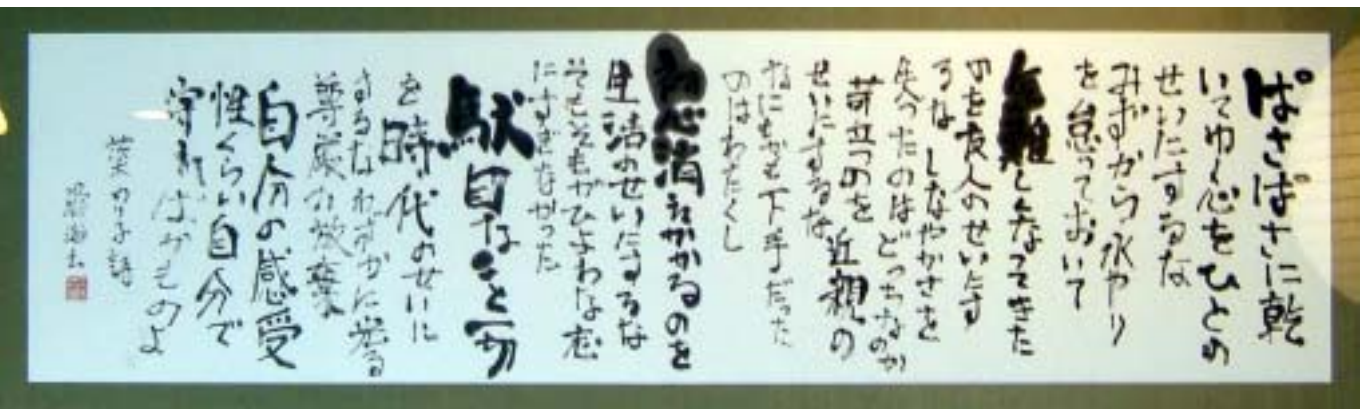 ぱさぱさに乾
いてゆく心をひとの
せいにするな
みずから水やり
を怠っておいて
気難しくなってきた
のを友人のせいにす
るな しなやかさを
失ったのはどっちなのか
苛立つのを 近親の
せいにするな
なにもかも下手だった
のはわたくし
初心消えかかるのを
生活のせいにするな
そもそもがひよわな志
にすぎなかった
駄目なこと一切
を時代のせいに
するな わずかに光る
尊厳の放棄
自分の感受
性くらい自分で
守れ ばかものよ
茨木のり子 詩